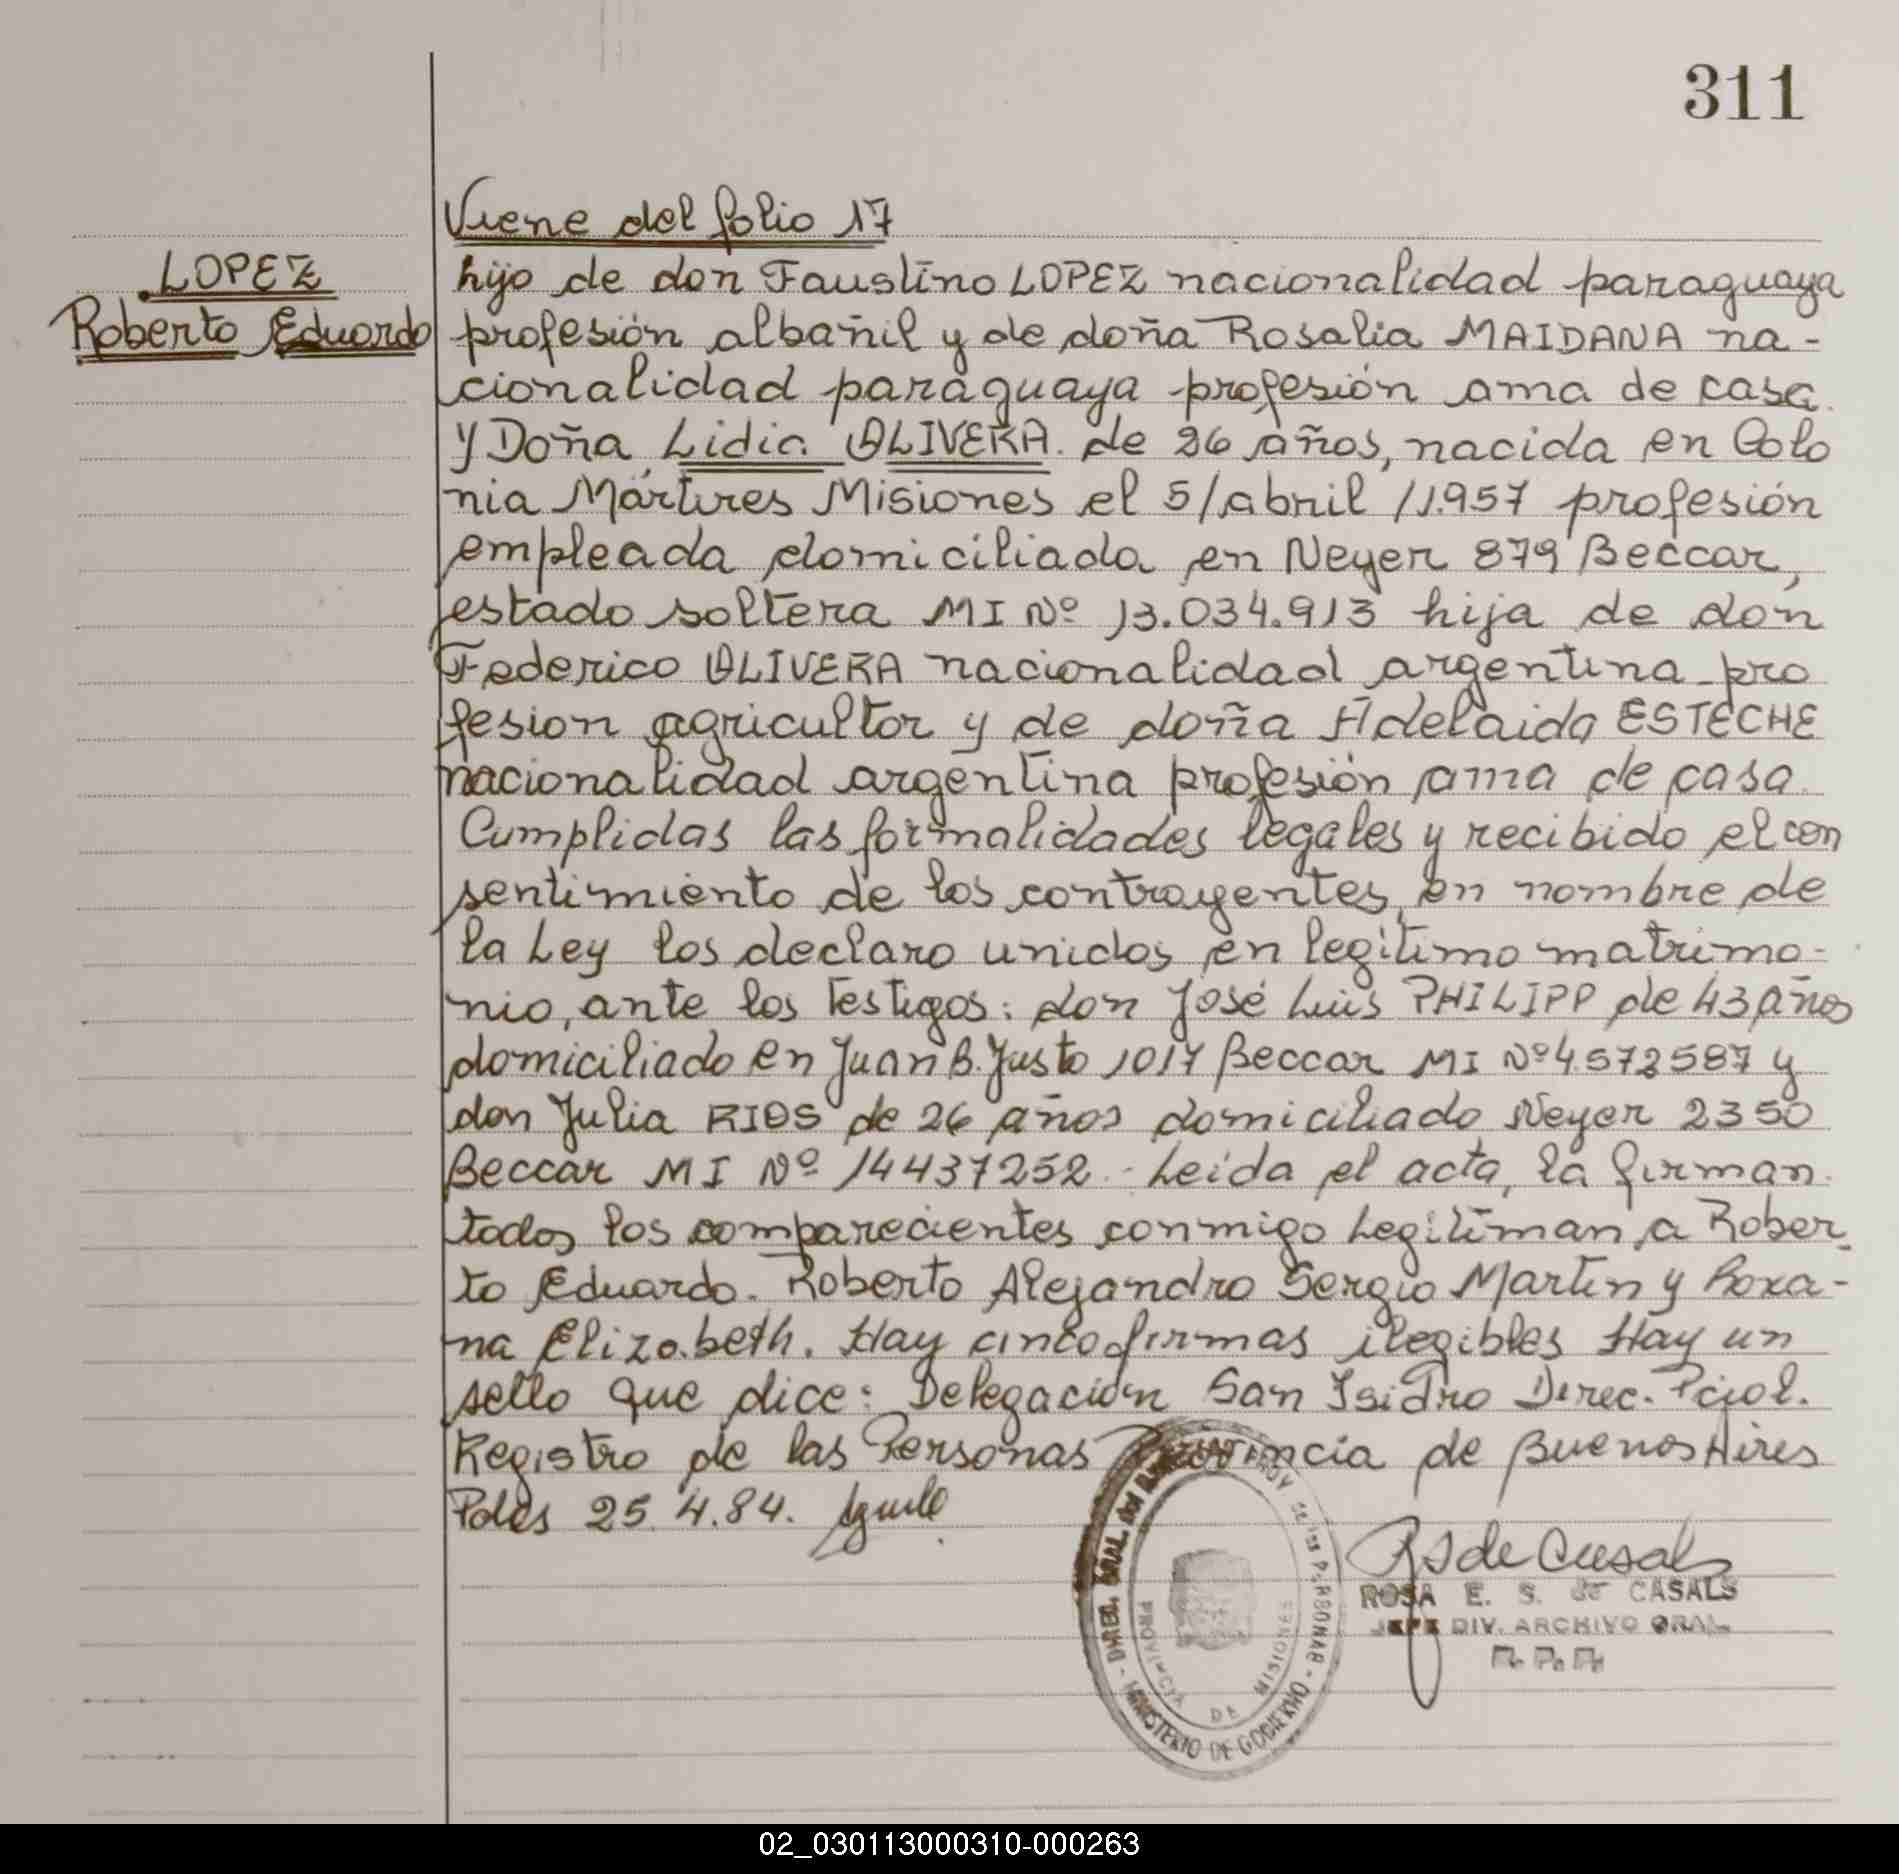 311
Viene del folio 17
LOPEZ
Roberto Eduardo
hijo de don Faustino LOPEZ nacionalidad paraguaya
profesión albañil y de doña Rosalia MAIDANA na-
cionalidad paraguaya profesión ama de casa
y Doña Lidia OLIVERA de 26 años, nacida en Colo
nia Mártires Misiones el 5/abril/1.957 profesión
empleada domiciliada en Neyer 879 Beccar,
estado soltera MI Nº 13.034.913 hija de don
Federico OLIVERA nacionalidad argentina pro
fesion agricultor y de doña Adelaida ESTECHE
nacionalidad argentina profesión ama de casa.
Cumplidas las formalidades legales y recibido el con
sentimiento de los contrayentes, en nombre de
la Ley los declaro unidos en legítimo matrimo-
nio, ante los testigos: don José Luis PHILIPP de 43 años
domiciliado en Juan B. Justo 1017 Beccar MI Nº 4.572587 y
don Julia RIOS de 26 años domiciliado Neyer 2350
Beccar MI Nº 14437252.- Leída el acta, la firman
todos los comparecientes conmigo Legitiman a Rober-
to Eduardo. Roberto Alejandro Sergio Martin y Roxa-
na Elizabeth. Hay cinco firmas ilegibles Hay un
sello que dice: Delegación San Isidro Direc. Pcial.
Registro de las Personas Provincia de Buenos Aires
Pdas 25.4.84.
DIREC. GRAL. de las PERSONAS - MINISTERIO DE GOBIERNO -
PROVINCIA DE MISIONES
RS de Casals
ROSA E. S. de CASALS
JEFE DIV. ARCHIVO GRAL.
R. P. P.
02_030113000310-000263